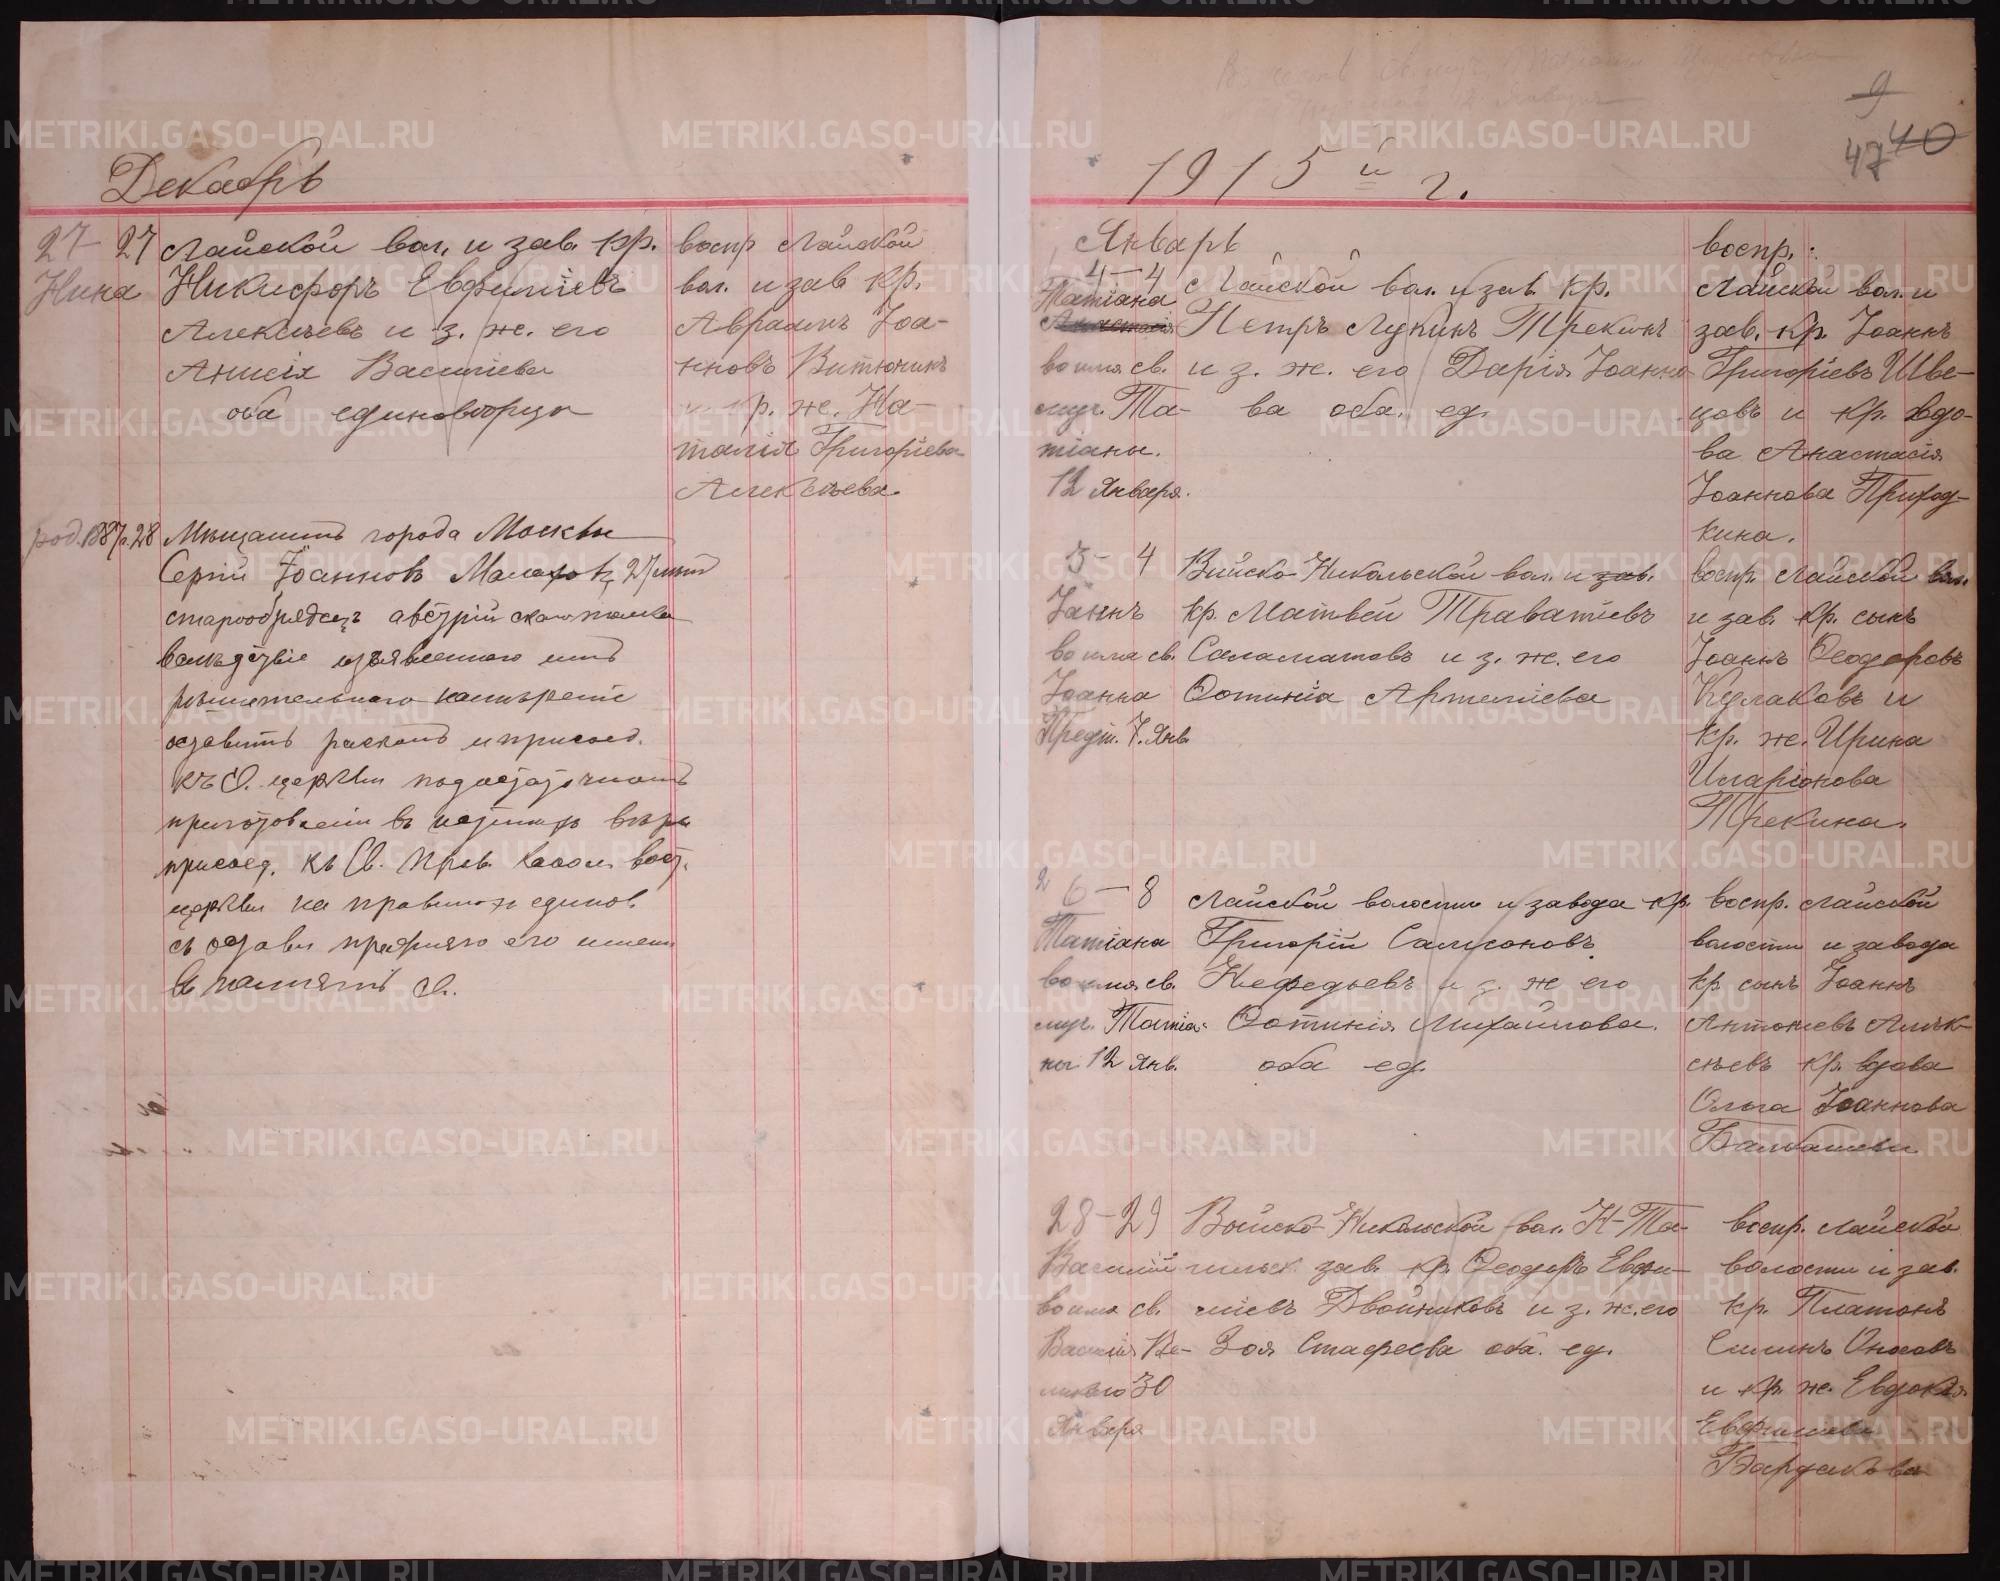 Декабрь
27 27 Лайской вол. и зав. кр.
Нина Никифоръ Евфиміевъ
Алексѣевъ и з. же. его
Анисія Васильева
оба единоверцы
воспр Лайской
вол. и зав кр.
Авраамъ Іоа-
нновъ Витюнинъ
и кр. же. На-
талія Григоріева
Алексѣева.
род. 1887 г. 28 Мѣщанинъ города Москвы
Сергій Іоанновъ 27 лѣтъ
старообрядецъ австрійскаго толка
вслѣдствіе изъявленного имъ
рѣшительнаго намѣренія
оставить расколъ и присоед.
къ церкви по достаточномъ
приготовленіи въ вѣры
присоед. къ Св. Прав. Кафол. Вост.
церкви на правилахъ единов.
съ оставл прежняго его имени
въ память
1915 й г.
9
47 40
Январь
4-4 Лайской вол. и зав. кр.
Татіана Петръ Лукинъ Трекинъ
во имя св. и з. же. его Дарія Іоанно-
муч. Та- ва оба. ед.
тіаны.
12 Января.
воспр.:
Лайской вол. и
зав. кр. Іоаннъ
Григоріевъ Шве-
цовъ и кр. вдо-
ва Анастасія
Іоаннова Приход-
кина.
3- 4 Выйско-Никольской вол. и зав.
Іоаннъ кр. Матвей
во имя св. Саламатовъ и з. же. его
Іоанна Фотинія Артеміева
Предт. 7. Янв
воспр. Лайской вол.
и зав. кр. сынъ
Іоаннъ Феодоровъ
Кулаковъ и
кр. же. Ирина
Иларіонова
Трекина.
2 6-8 Лайской волости и завода кр
Татіана Григорій Сампсоновъ
во имя св. Нефедьевъ и з. же его
муч. Татіа- Фотинія Михайлова.
ны 12 Янв. оба ед.
воспр. Лайской
волости и завода
кр сынъ Іоаннъ
Антоніевъ Алек-
сѣевъ кр. вдова
Ольга Іоаннова
28-29 Выйско-Никольской вол. Н-Та-
Василій гильск. зав. кр. Феодоръ Евфи-
во имя св. міевъ Двойниковъ и з. же. его
Василія Ве- Зоя Стафеева оба. ед.
ликаго 30
Января
воспр. Лайской
волости и зав.
кр. Платонъ
Силинъ
и кр. же. Евдокія
Евфиміева